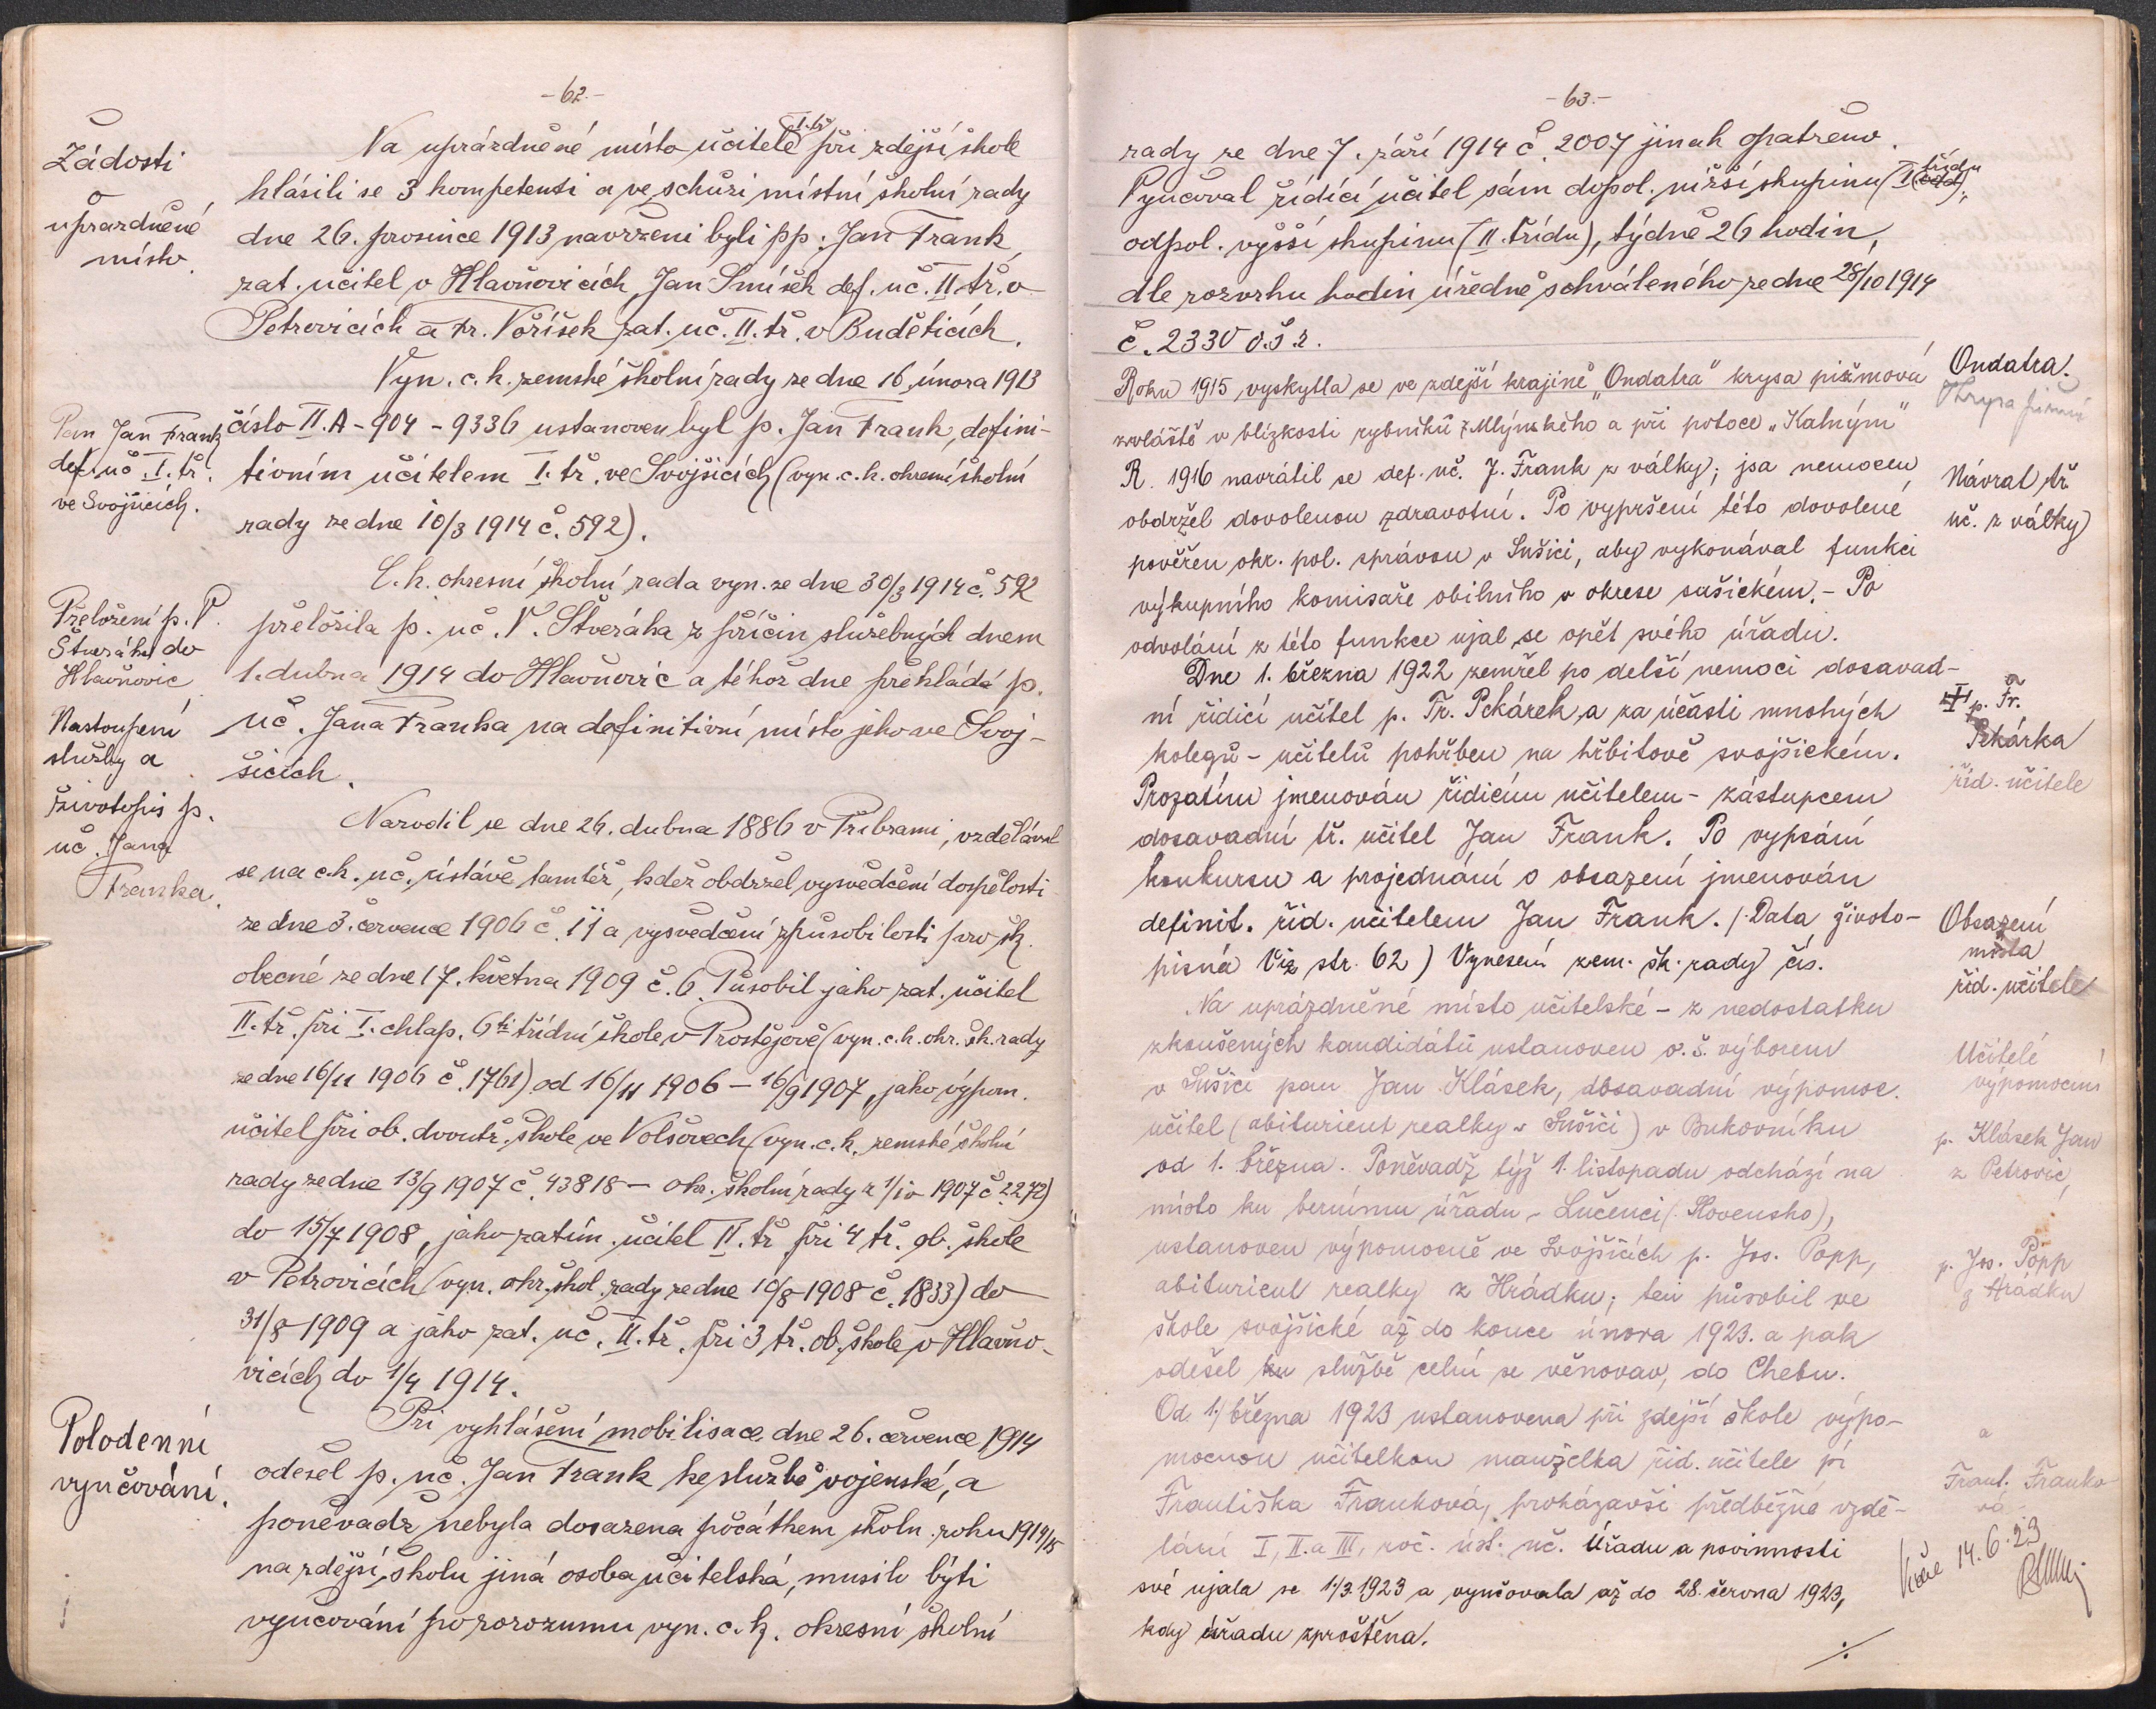 -62.-
Žádosti
o
uprázdněné
místo.
Na uprázdněné místo učitele I. tř. při zdejší škole
hlásili se 3 kompetenti a ve schůzi místní školní rady
dne 26. prosince 1913 navrženi byli pp. Jan Frank,
zat. učitel v Hlavňovicích, Jan Smíšek def. uč. II. tř. v
Petrovicích a Fr. Voříšek zat. uč. II. tř. v Buděticích.
Vyn. c. k. zemské školní rady ze dne 16. února 1913
Pan Jan Frank
def. uč. I. tř.
ve Svojšicích.
číslo II. A - 904 - 9336 ustanoven byl p. Jan Frank, defini-
tivním učitelem I. tř. ve Svojšicích (vyn. c. k. okresní školní
rady ze dne 10/3 1914 č. 592).
C. k. okresní školní rada vyn. ze dne 30/3 1914 č. 592
Přeložení p. V.
Štveráka do
Hlavňovic
přeložila p. uč. V. Štveráka z příčin služebných dnem
1. dubna 1914 do Hlavňovic a téhož dne překládá p.
uč. Jana Franka na definitivní místo jeho ve Svoj-
šicích.
Nastoupení
služby a
životopis p.
uč. Jana
Franka.
Narodil se dne 26. dubna 1886 v Příbrami, vzdělával
se na c. k. uč. ústavě tamtéž, kdež obdržel vysvědčení dospělosti
ze dne 3. července 1906 č. 11 a vysvědčení způsobilosti pro šk.
obecné ze dne 17. května 1909 č. 6. Působil jako zat. učitel
II. tř. při I. chlap. 6ti třídní škole v Prostějově (vyn. c. k. okr. šk. rady
ze dne 16/11 1906 č. 1761) od 16/11 1906 - 16/9 1907, jako výpom.
učitel při ob. dvoutř. škole ve Volšovech (vyn. c. k. zemské školní
rady ze dne 13/9 1907 č. 43818 - okr. školní rady z 1/10 1907 č. 2272)
do 15/7 1908, jako zatím. učitel II. tř. při 4 tř. ob. škole
v Petrovicích (vyn. okr. škol. rady ze dne 10/8 1908 č. 1833) do
31/8 1909 a jako zat. uč. II. tř. při 3 tř. ob. škole v Hlavňo-
vicích do 1/4 1914.
Polodenní
vyučování.
Při vyhlášení mobilisace dne 26. července 1914
odešel p. uč. Jan Frank ke službě vojenské, a
poněvadž nebyla dosazena počátkem školn. roku 1914/15
na zdejší školu jiná osoba učitelská, musilo býti
vyučování po rozumu vyn. c. k. okresní školní
-63.-
rady ze dne 7. září 1914 č. 2007 jinak opatřeno.
Vyučoval řídící učitel sám dopol. nižší skupinu (I třídu),
odpol. vyšší skupinu (II. třídu), týdně 26 hodin,
dle rozvrhu hodin úředně schváleného ze dne 28/10 1914
č. 2330 o. š. r.
Ondatra.
Krysa pižmová
Roku 1915 vyskytla se ve zdejší krajině "Ondatra" krysa pižmová
zvláště v blízkosti rybníků z Mlýnského a při potoce "Kalným"
Návrat tř.
uč. z války
R. 1916 navrátil se def. uč. J. Frank z války; jsa nemocen,
obdržel dovolenou zdravotní. Po vypršení této dovolené
pověřen okr. pol. správou v Sušici, aby vykonával funkci
výkupního komisaře obilního v okrese sušickém. - Po
odvolání z této funkce ujal se opět svého úřadu.
Dne 1. března 1922 zemřel po delší nemoci dosavad-
p. Fr.
Pekárka
říd. učitele
ní řídící učitel p. Fr. Pekárek a za účasti mnohých
kolegů - učitelů pohřben na hřbitově svojšickém.
Prozatím jmenován řídicím učitelem - zástupcem
dosavadní tř. učitel Jan Frank. Po vypsání
konkursu a projednání o obsazení jmenován
Obsazení
místa
říd. učitele
definit. říd. učitelem Jan Frank. (Data životo-
pisná Viz str. 62) Vynesení zem. šk. rady čís.
Na uprázdněné místo učitelské - z nedostatku
zkoušených kandidátů ustanoven o. š. výborem
Učitelé
výpomocní
v Sušici pan Jan Klásek, dosavadní výpomoc.
učitel (abiturient realky v Sušici) v Bukovníku
p. Klásek Jan
z Petrovic,
od 1. března. Poněvadž týž 1. listopadu odchází na
místo ku bernímu úřadu - Lučenci (Slovensko),
ustanoven výpomocně ve Svojšicích p. Jos. Popp,
p. Jos. Popp
z Hrádku
abiturient realky z Hrádku; ten působil ve
škole svojšické až do konce února 1923. a pak
odešel ku službě celní se věnovav, do Chebu.
Od 1./ března 1923 ustanovena při zdejší škole výpo-
a
mocnou učitelkou manželka říd. učitele pí
Frant. Franko-
vá.
Františka Franková, prokázavši předběžné vzdě-
lání I, II. a III. roč. úst. uč. Úřadu a povinnosti
své ujala se 1/3 1923 a vyučovala až do 28. června 1923,
kdy úřadu zproštěna.
14. 6. 23
./.